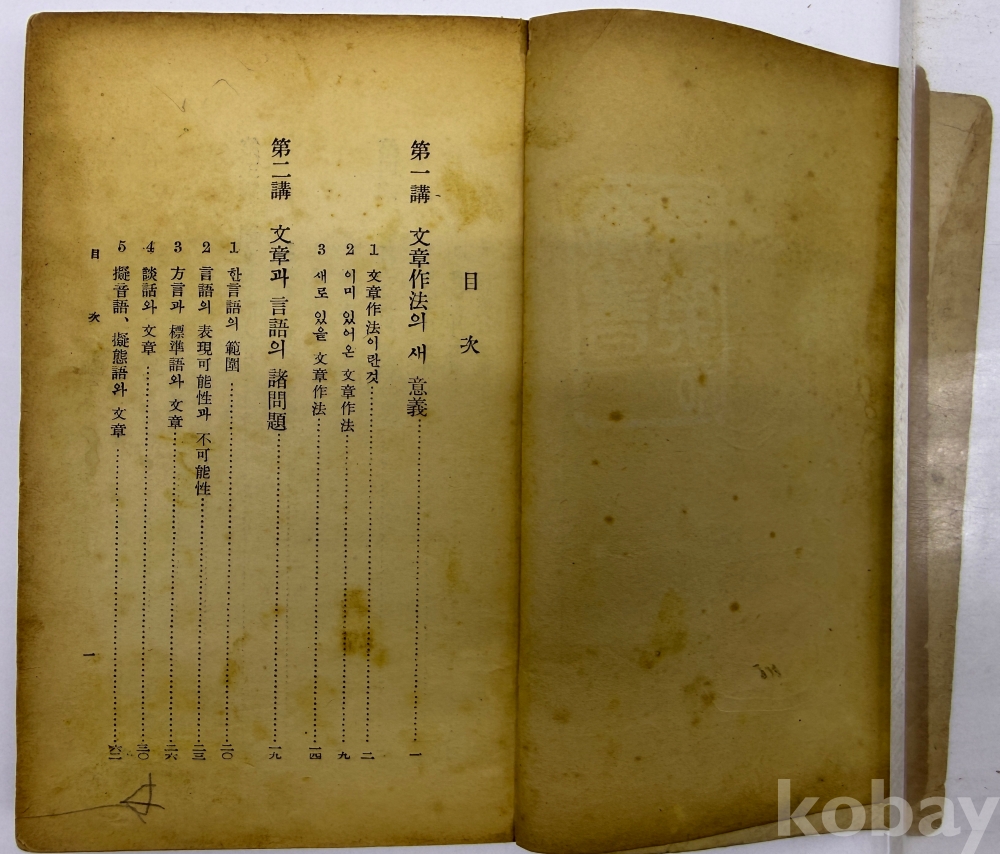 目次
第一講 文章作法의 새 意義 一
1 文章作法이란것 二
2 이미 있어온 文章作法 九
3 새로 있을 文章作法 一四
第二講 文章과 言語의 諸問題 一九
1 한言語의 範圍 二〇
2 言語의 表現可能性과 不可能性 二三
3 方言과 標準語와 文章 二六
4 談話와 文章 三〇
5 擬音語、擬態語와 文章
目次 一
kobay